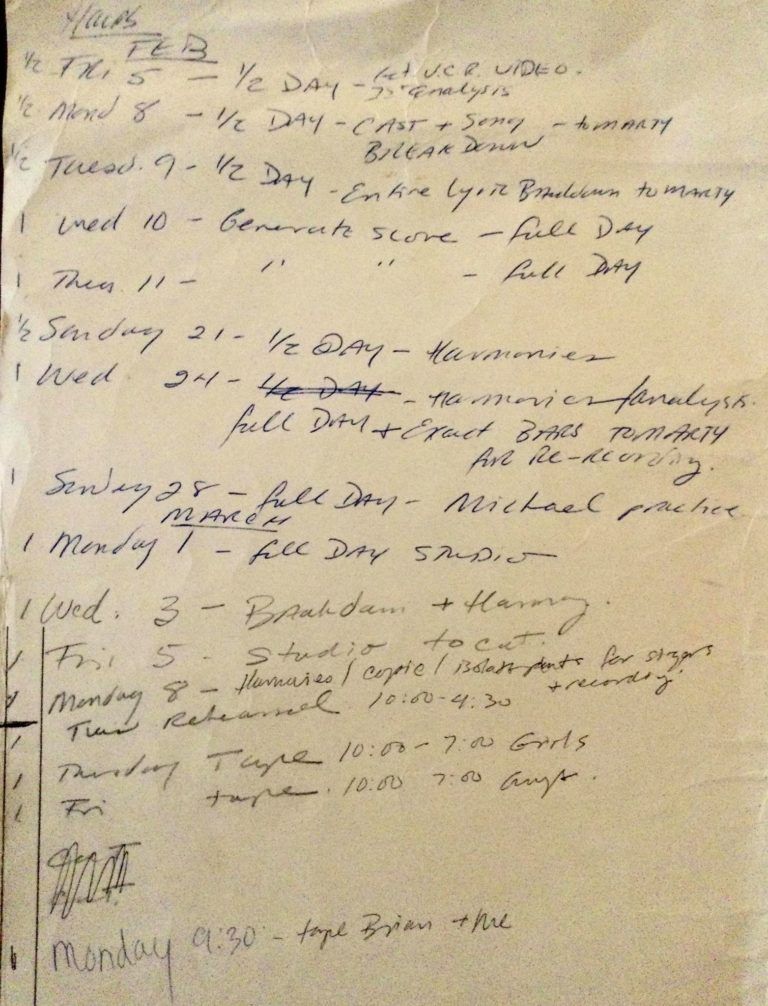 Hours
FEB
1/2 Fri 5 - 1/2 DAY - Get V.C.R. VIDEO.
Analysis
1/2 Mond 8 - 1/2 DAY - CAST + Song - to MARTY
BREAKDOWN
1/2 Tuesd. 9 - 1/2 DAY - Entire Lyric Breakdown to MARTY
1 Wed 10 - Generate Score - full DAY
1 Thur 11 - " " - full DAY
1/2 Sunday 21 - 1/2 DAY - Harmonies
1 Wed 24 - 1/2 DAY - Harmonies/analysis.
full DAY + Exact BARS TO MARTY
for Re-recording.
1 Sunday 28 - full DAY - Michael practice
MARCH
1 Monday 1 - full DAY STUDIO
1 Wed. 3 - Breakdown + Harmony.
1 Fri 5 - Studio to cut.
1 Monday 8 - Harmonies / copie / parts for singers
+ recording.
1 Tues Rehearsal 10:00-4:30
1 Thursday Tape 10:00-7:00 Girls
1 Fri tape. 10:00 7:00 Guys.
Monday 9:30 - tape Brian + Me